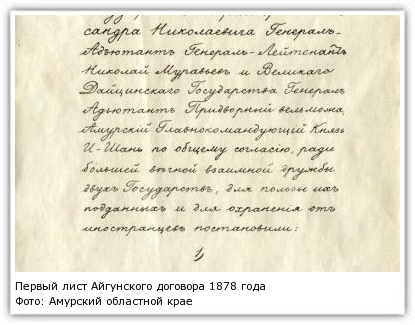 сандра Николаевича Генералъ-
Адъютантъ Генералъ-Лейтенантъ
Николай Муравьевъ и Великаго
Дайцинскаго Государства Генералъ
Адъютантъ Придворный вельможа,
Амурскій Главнокомандующій Князь
И-Шань по общему согласію, ради
большей вѣчной взаимной дружбы
двухъ Государствъ, для пользы ихъ
подданныхъ и для охраненія отъ
иностранцевъ постановили:
1/
Первый лист Айгунского договора 1878 года
Фото: Амурский областной крае